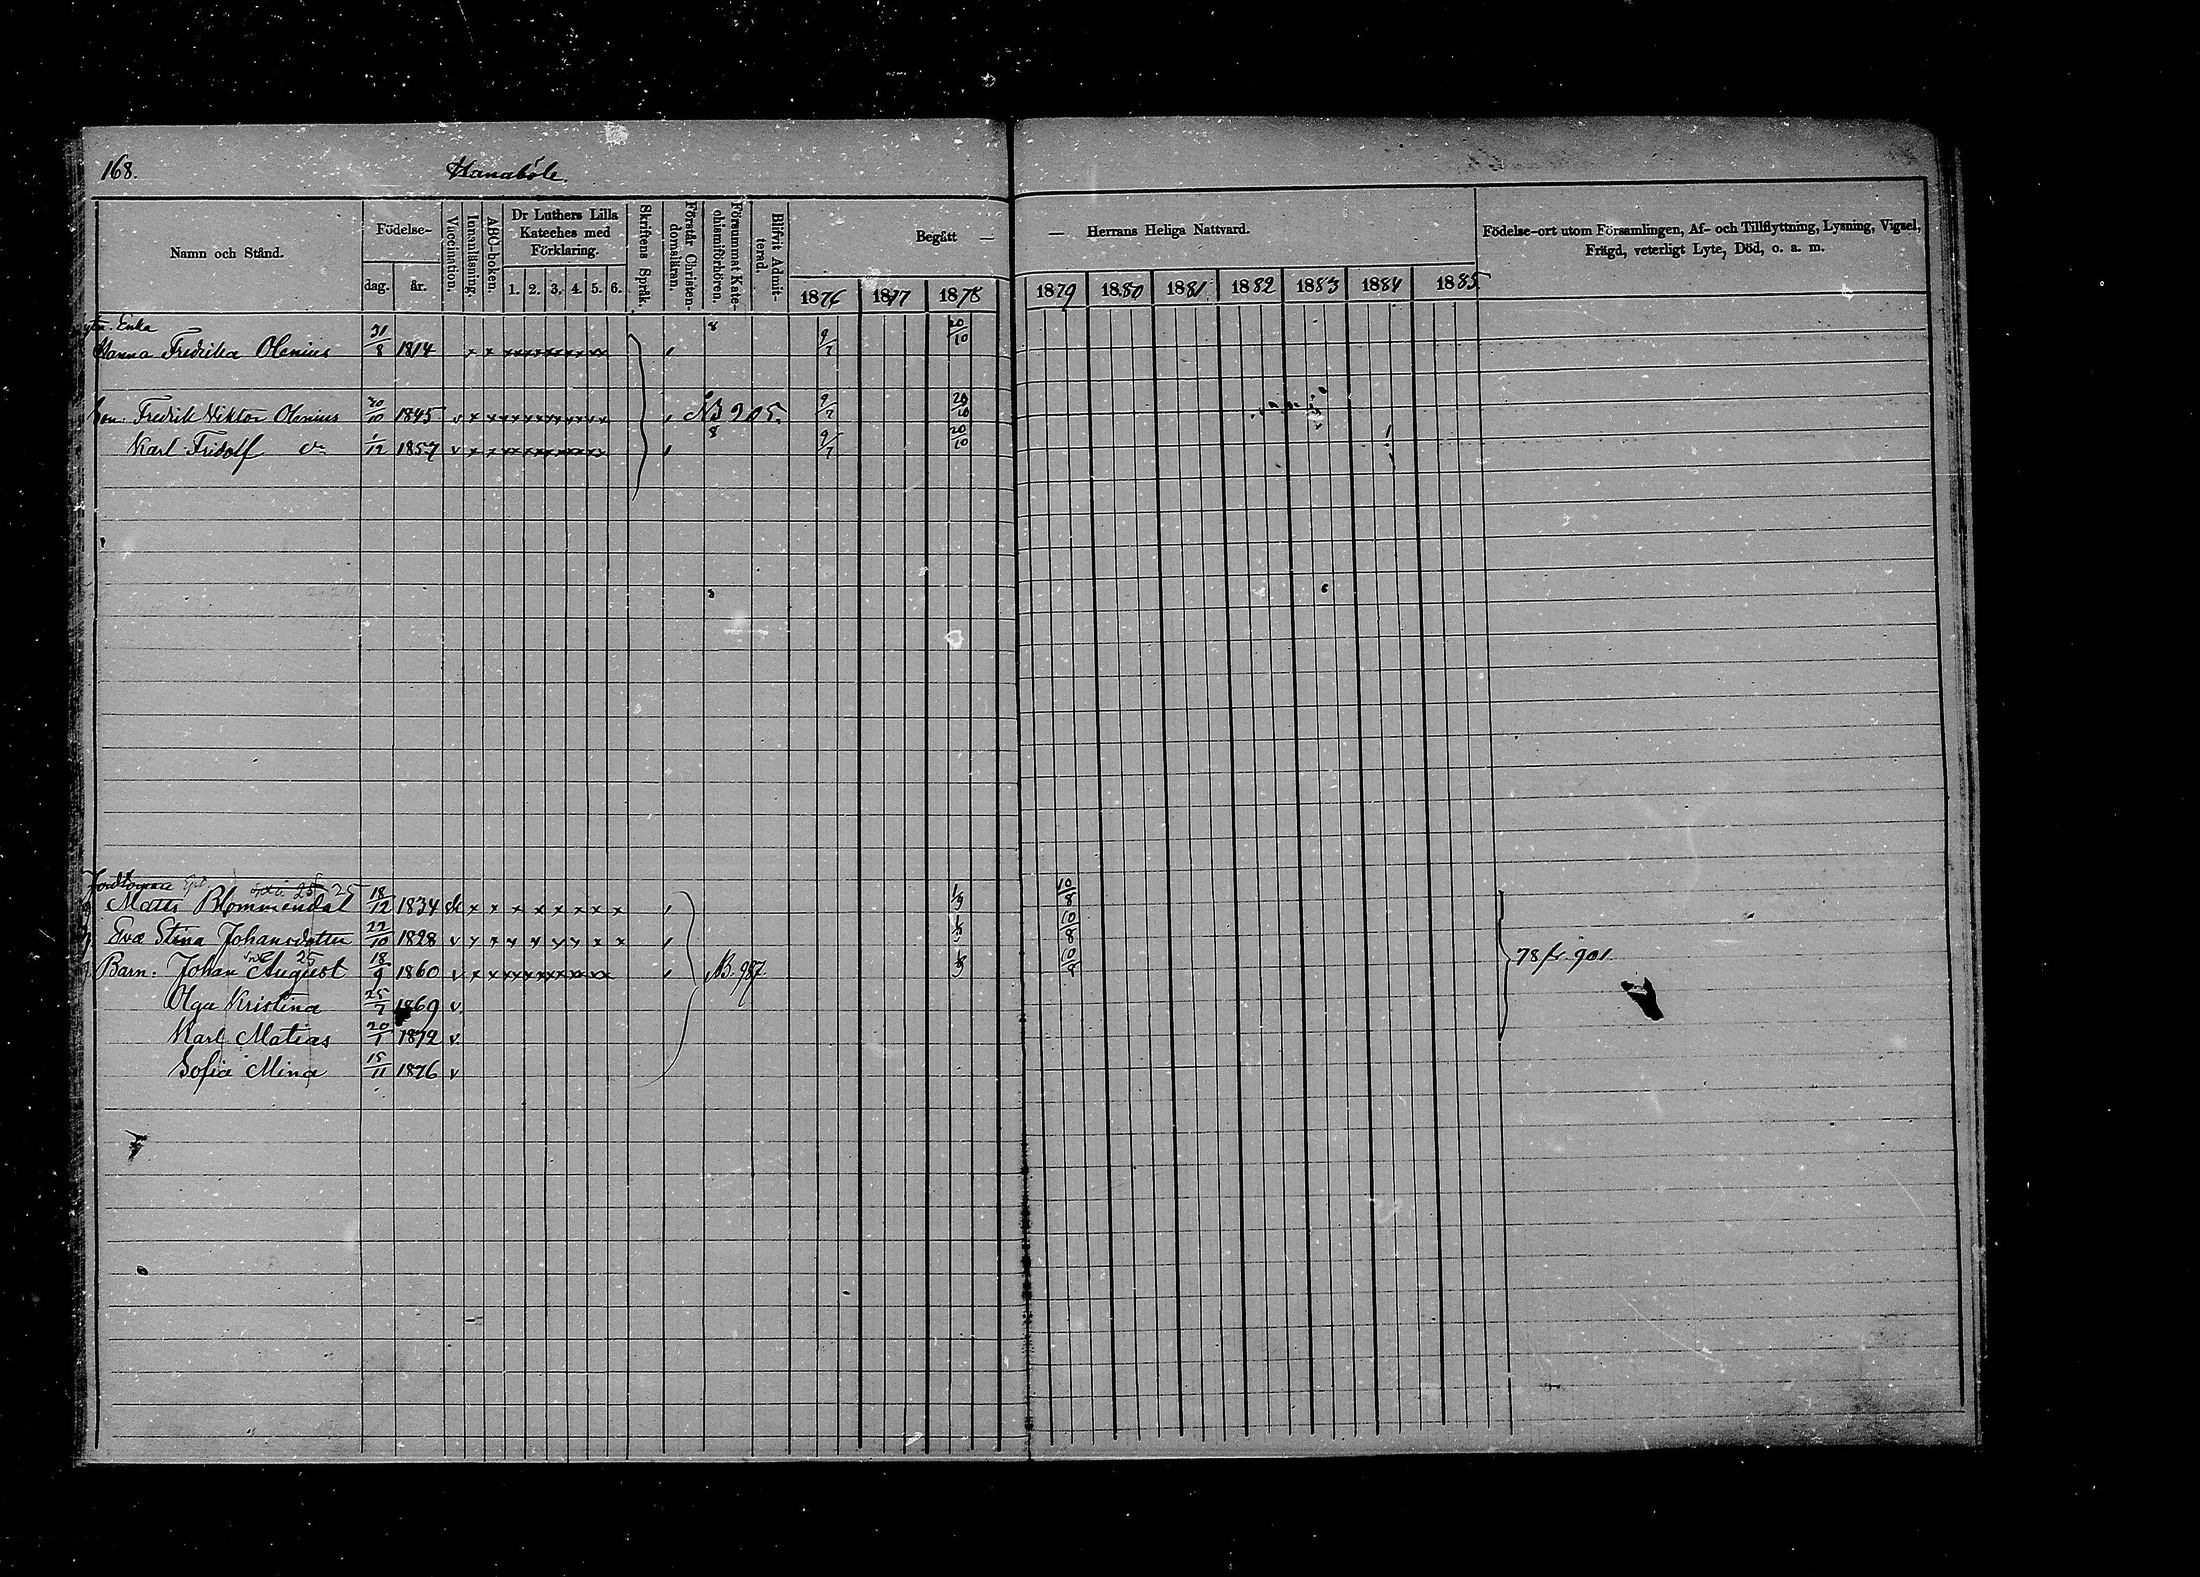 168.
Hanaböle.
Namn och Stånd.
Födelse-
dag. år.
Vaccination.
Innanläsning.
ABC-boken.
Dr Luthers Lilla Kateches med Förklaring.
1. 2. 3. 4. 5. 6.
Skriftens Språk.
Förstår Christendomsläran.
Försummat Katechismiförhören.
Blifvit Admitterad.
Begått —
— Herrans Heliga Nattvard.
1876 1877 1878 1879 1880 1881 1882 1883 1884 1885
Födelse-ort utom Församlingen, Af- och Tillflyttning, Lysning, Vigsel,
Frägd, veterligt Lyte, Död, o. a. m.
Enka
Hanna Fredrika Olenius 31/8 1814 x x xxxxxxxxxx 8 9/7 20/10
Son: Fredrik Viktor Olenius 30/10 1845 v x x xxxxxxxxxx NB 205. 9/7 20/10
Karl Fridolf 1857 v x x xxxxxxxxxx 8 9/7 20/10
25 25
Matts Blommendal 18/12 1834 sk x x x x x x x x 10/8
Eva Stina Johansdotter 22/10 1828 v x x x x x x x x 10/8
25
Barn: Johan August 18/9 1860 v x x xxxxxxxxxx NB. 987 10/8 78 fr 901.
Olga Kristina 25/7 1869 v.
Karl Matias 20/1 1872 v.
Sofia Mina 15/11 1876 v